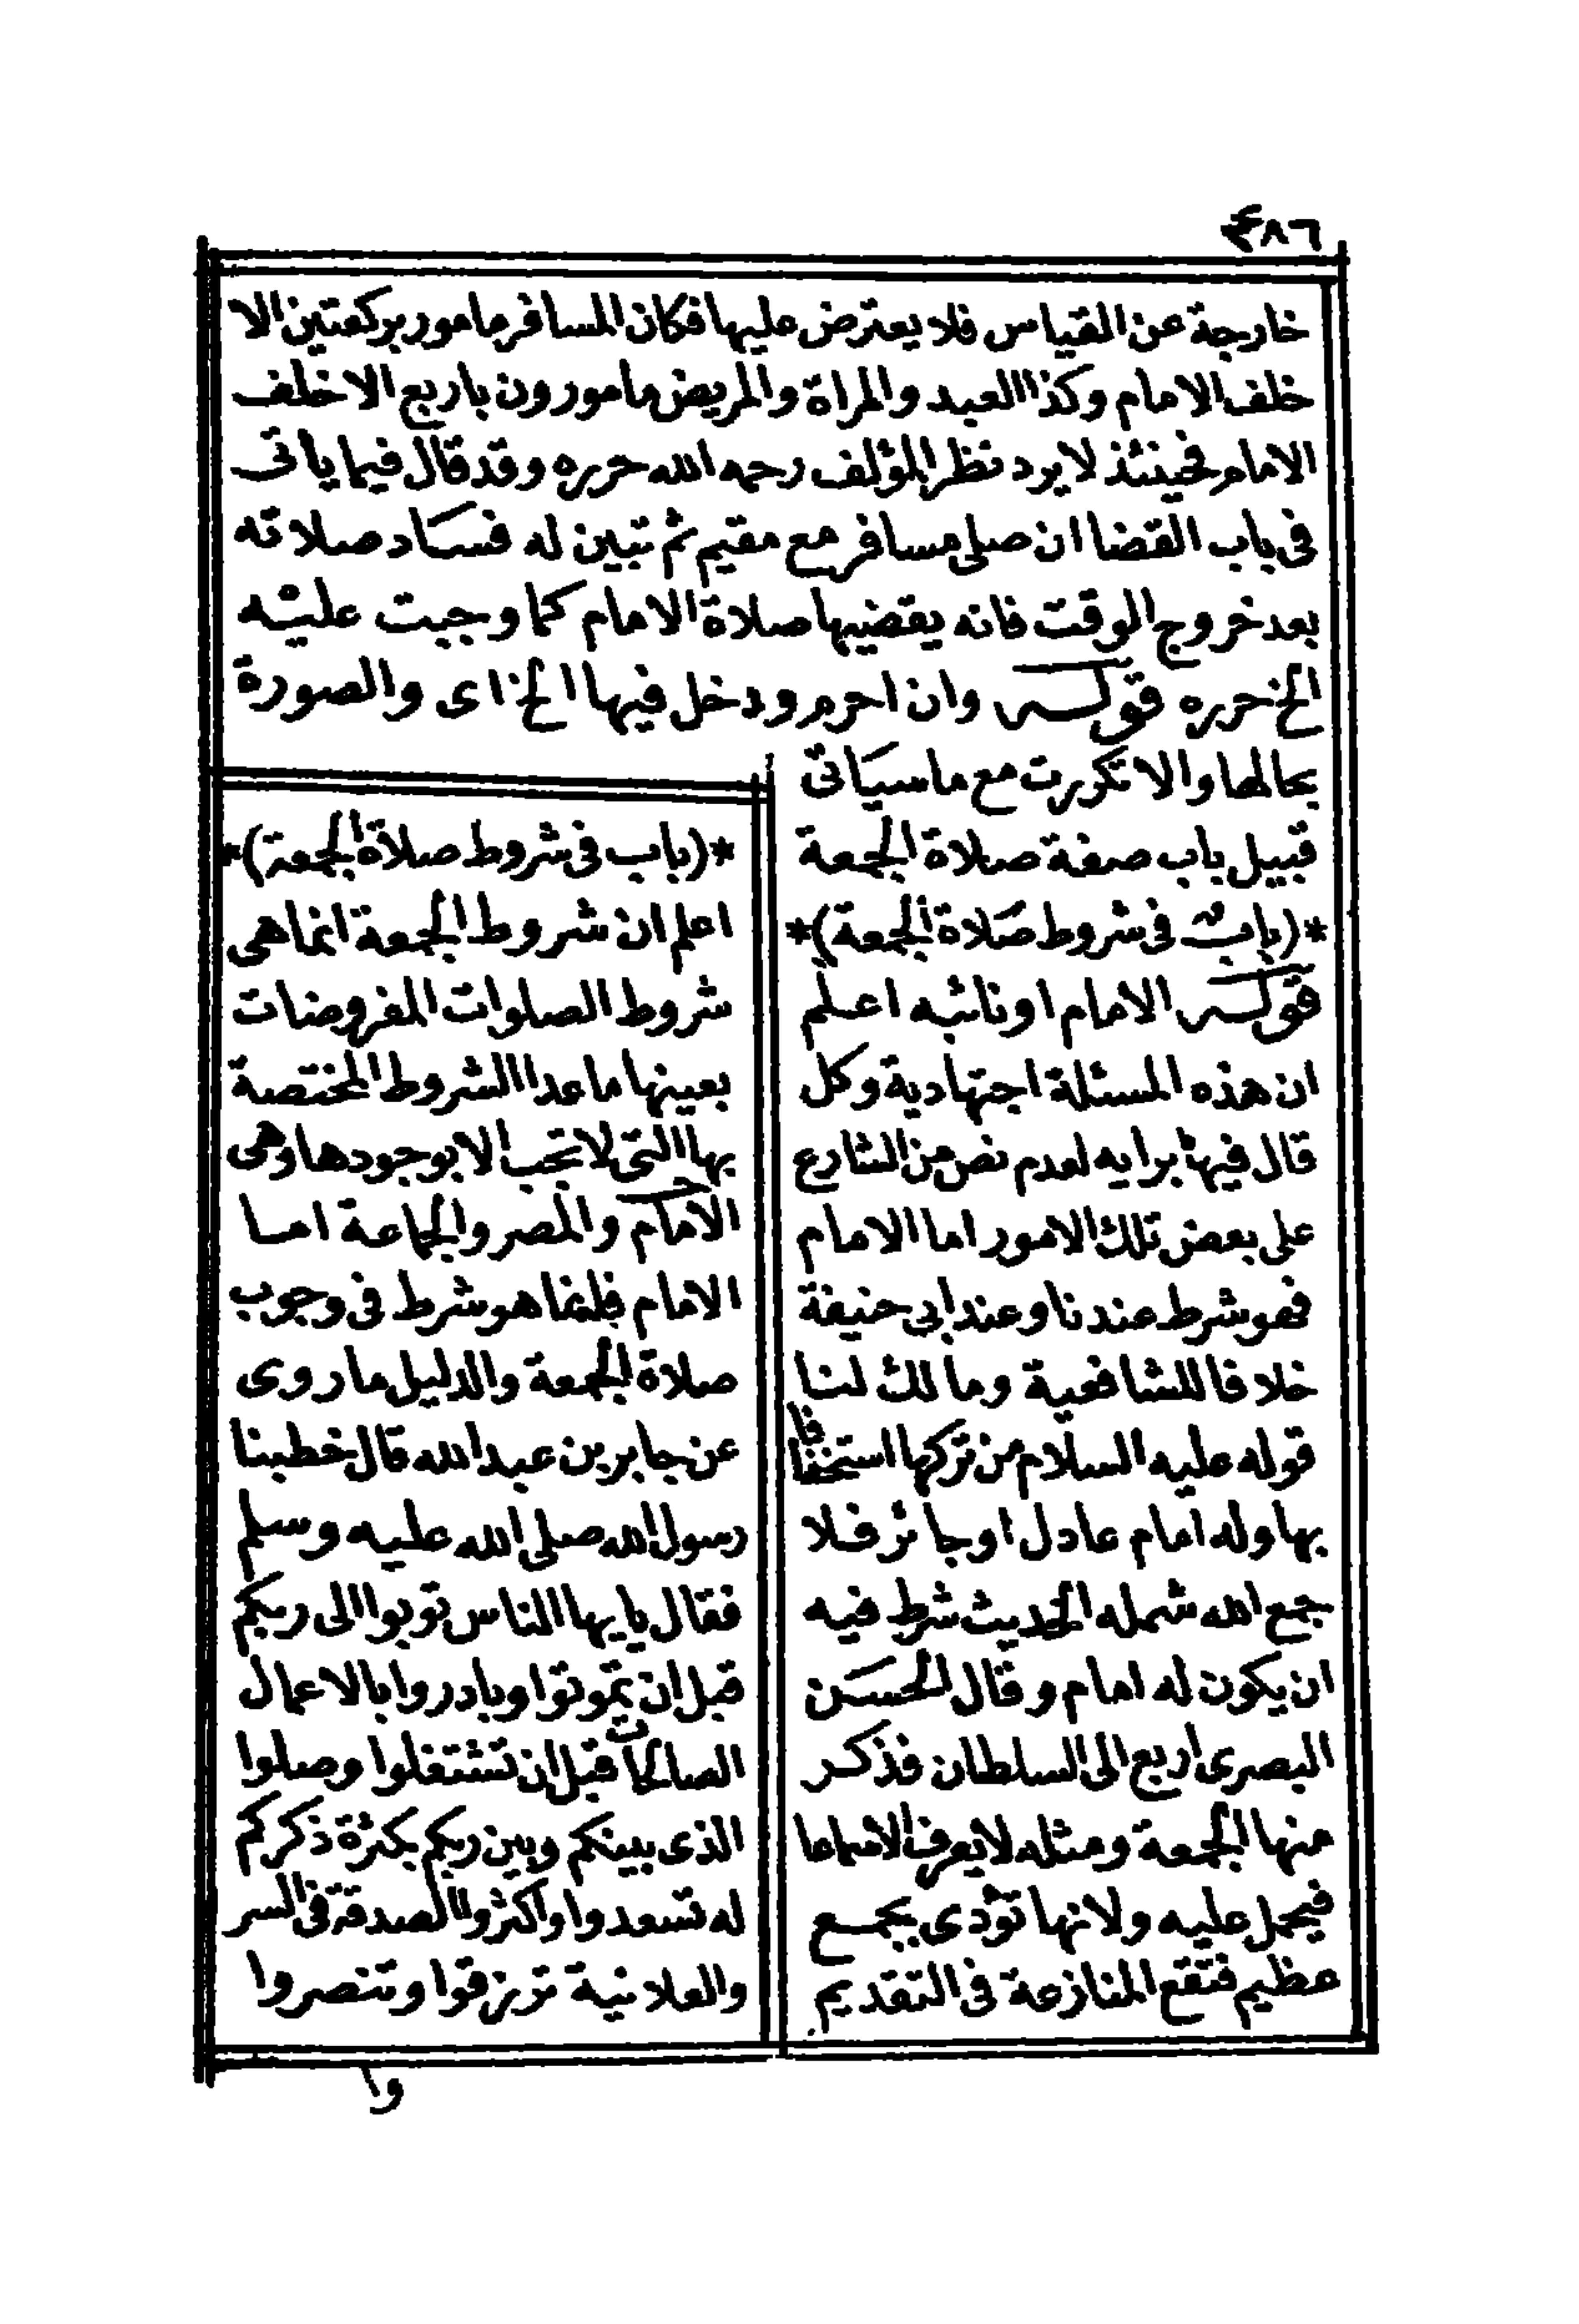 ٤٨٦
خارجة عن القياس فلا يعترض عليها فكان المسافر مامور بركعتين الا
خلف الامام وكذا العبد والمراة والمريض مامورون باربع الا خلف
الامام فحينئذ لا يرد نظر المؤلف رحمه الله حرره وقد قال فيما ياتى
فى باب القضا ان صلى مسافر مع مقيم ثم تبين له فساد صلاته
بعد خروج الوقت فانه يقضيها صلاة الامام كما وجبت عليه
الخ حرره قوله وان احرم ودخل فيها الخ اى والصورة
بحالها والا تكررت مع ما سياتى
قبيل باب صفة صلاة الجمعة
*(باب فى شروط صلاة الجمعة)*
قوله الامام او نائبه اعلم
ان هذه المسئلة اجتهادية وكل
قال فيها برايه لعدم نص من الشارع
على بعض تلك الامور اما الامام
فهو شرط عندنا وعند ابى حنيفة
خلافا للشافعية ومالك لنا
قوله عليه السلام من تركها استخفافا
بها وله امام عادل او جائر فلا
جمع الله شمله الحديث شرط فيه
ان يكون له امام وقال الحسن
البصرى اربع الى السلطان فذكر
منها الجمعة ومثله لا يعرف الا سماعا
فيحمل عليه ولانها تؤدى بجمع
عظيم فتقع المنازعة فى التقديم
*(باب فى شروط صلاة الجمعة)*
اعلم ان شروط الجمعة انما هى
شروط الصلوات المفروضات
بعينها ما عدا الشروط المختصة
بها التى لا تجب الا بوجودها وهى
الامام والمصر والجماعة اما
الامام فانما هو شرط فى وجوب
صلاة الجمعة والدليل ما روى
عن جابر بن عبد الله قال خطبنا
رسول الله صلى الله عليه وسلم
فقال يا يها الناس توبوا الى ربكم
قبل ان تموتوا وبادروا بالاعمال
الصالحات قبل ان تشتغلوا وصلوا
الذى بينكم وبين ربكم بكثرة ذكركم
له تسعدوا واكثروا الصدقة فى السر
والعلانية ترزقوا وتنصروا
وا